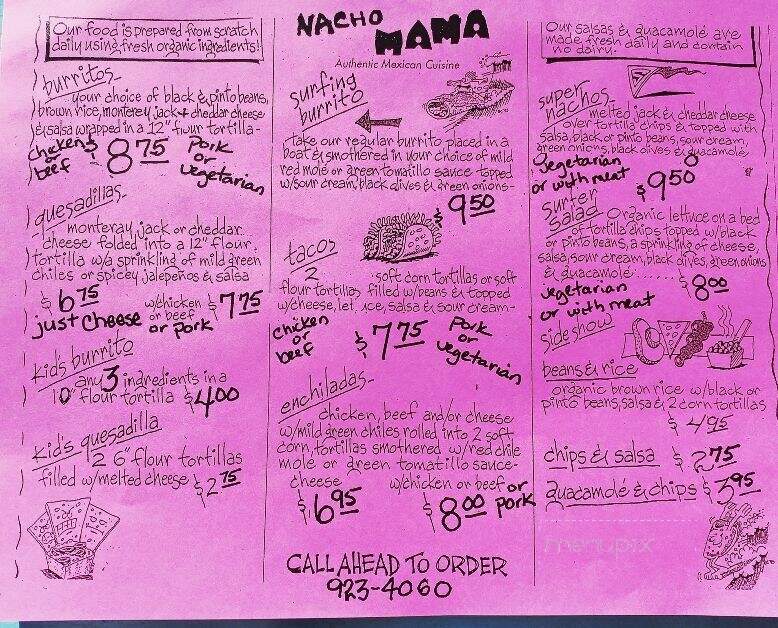 Our food is prepared from scratch
daily using fresh organic ingredients!
burritos-
your choice of black & pinto beans,
brown rice, monterey jack & cheddar cheese
& salsa wrapped in a 12" flour tortilla-
chicken or beef $8.75 Pork or vegetarian
quesadillas-
monteray jack or cheddar
cheese folded into a 12" flour
tortilla w/a sprinkling of mild green
chiles or spicey jalepeños & salsa
$6.75 just cheese
w/chicken or beef or pork $7.75
kid's burrito
any 3 ingredients in a
10" flour tortilla $4.00
kid's quesadilla
2 6" flour tortillas
filled w/melted cheese $2.75
NACHO MAMA
Authentic Mexican Cuisine
surfing
burrito
take our regular burrito placed in a
boat & smothered in your choice of mild
red mole or green tomatillo sauce - topped
w/sour cream, black olives & green onions-
$9.50
tacos
2 soft corn tortillas or soft
flour tortillas filled w/beans & topped
w/cheese, let uce, salsa & sour cream-
chicken or beef $7.75 Pork or vegetarian
enchiladas-
chicken, beef and/or cheese
w/mild green chiles rolled into 2 soft
corn, tortillas smothered w/red chile
mole or green tomatillo sauce-
cheese $6.95
w/chicken or beef or pork $8.00
CALL AHEAD TO ORDER
923-4060
Our salsas & guacamole are
made fresh daily and contain
no dairy.
super
nachos-
melted jack & cheddar cheese
over tortilla chips & topped with
salsa, black or pinto beans, sour cream,
green onions, black olives & guacamolé
vegetarian
or with meat $9.50
surfer
salad
Organic lettuce on a bed
of tortilla chips topped w/black
or pinto beans, a sprinkling of cheese,
salsa, sour cream, black olives, green onions
& guacamolé.......
vegetarian
or with meat $8.00
side show
beans & rice
organic brown rice w/black or
pinto beans, salsa & 2 corn tortillas
$4.95
chips & salsa $2.75
guacamolé & chips $3.95
menupix